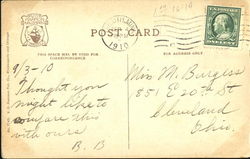 1st 10-10
1910
POST CARD
THIS SPACE MAY BE USED FOR
CORRESPONDENCE
FOR ADDRESS ONLY
9/3-10
Thought you
might like to
compare this
with ours
B. B
Miss M. Burgess
851 E 20th St
Cleveland
Ohio.